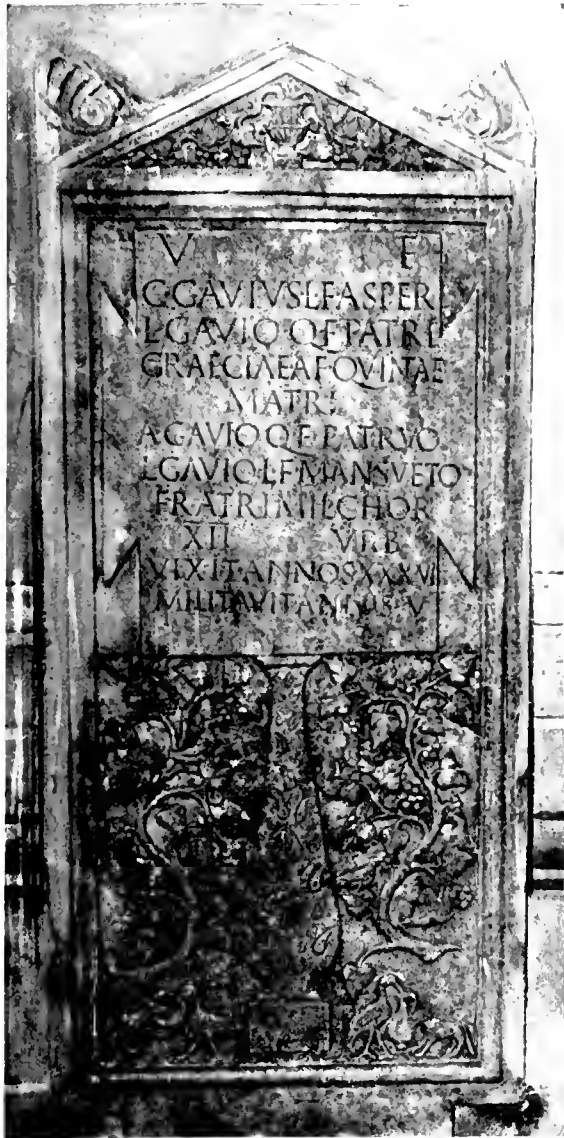 V F
C·GAVIVS·L·F·ASPER
L·GAVIO·Q·F·PATRI
GRAECIAE·A·F·QVINTAE
MATRI
A·GAVIO·Q·F·PATRVO
L·GAVIO·L·F·MANSVETO
FRATRI·MIL·CHOR
XII VRB
VIXIT·ANNOS·XXXVI
MILITAVIT V